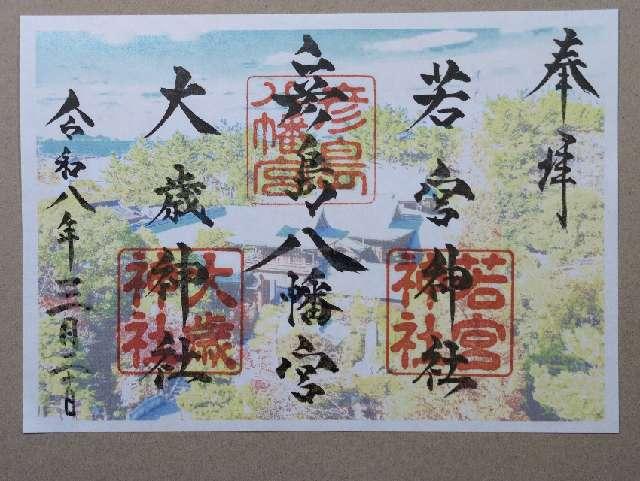 奉拝
若宮神社
若宮神社
彦島八幡宮
彦島八幡宮
大歳神社
大歳神社
令和八年三月二十日